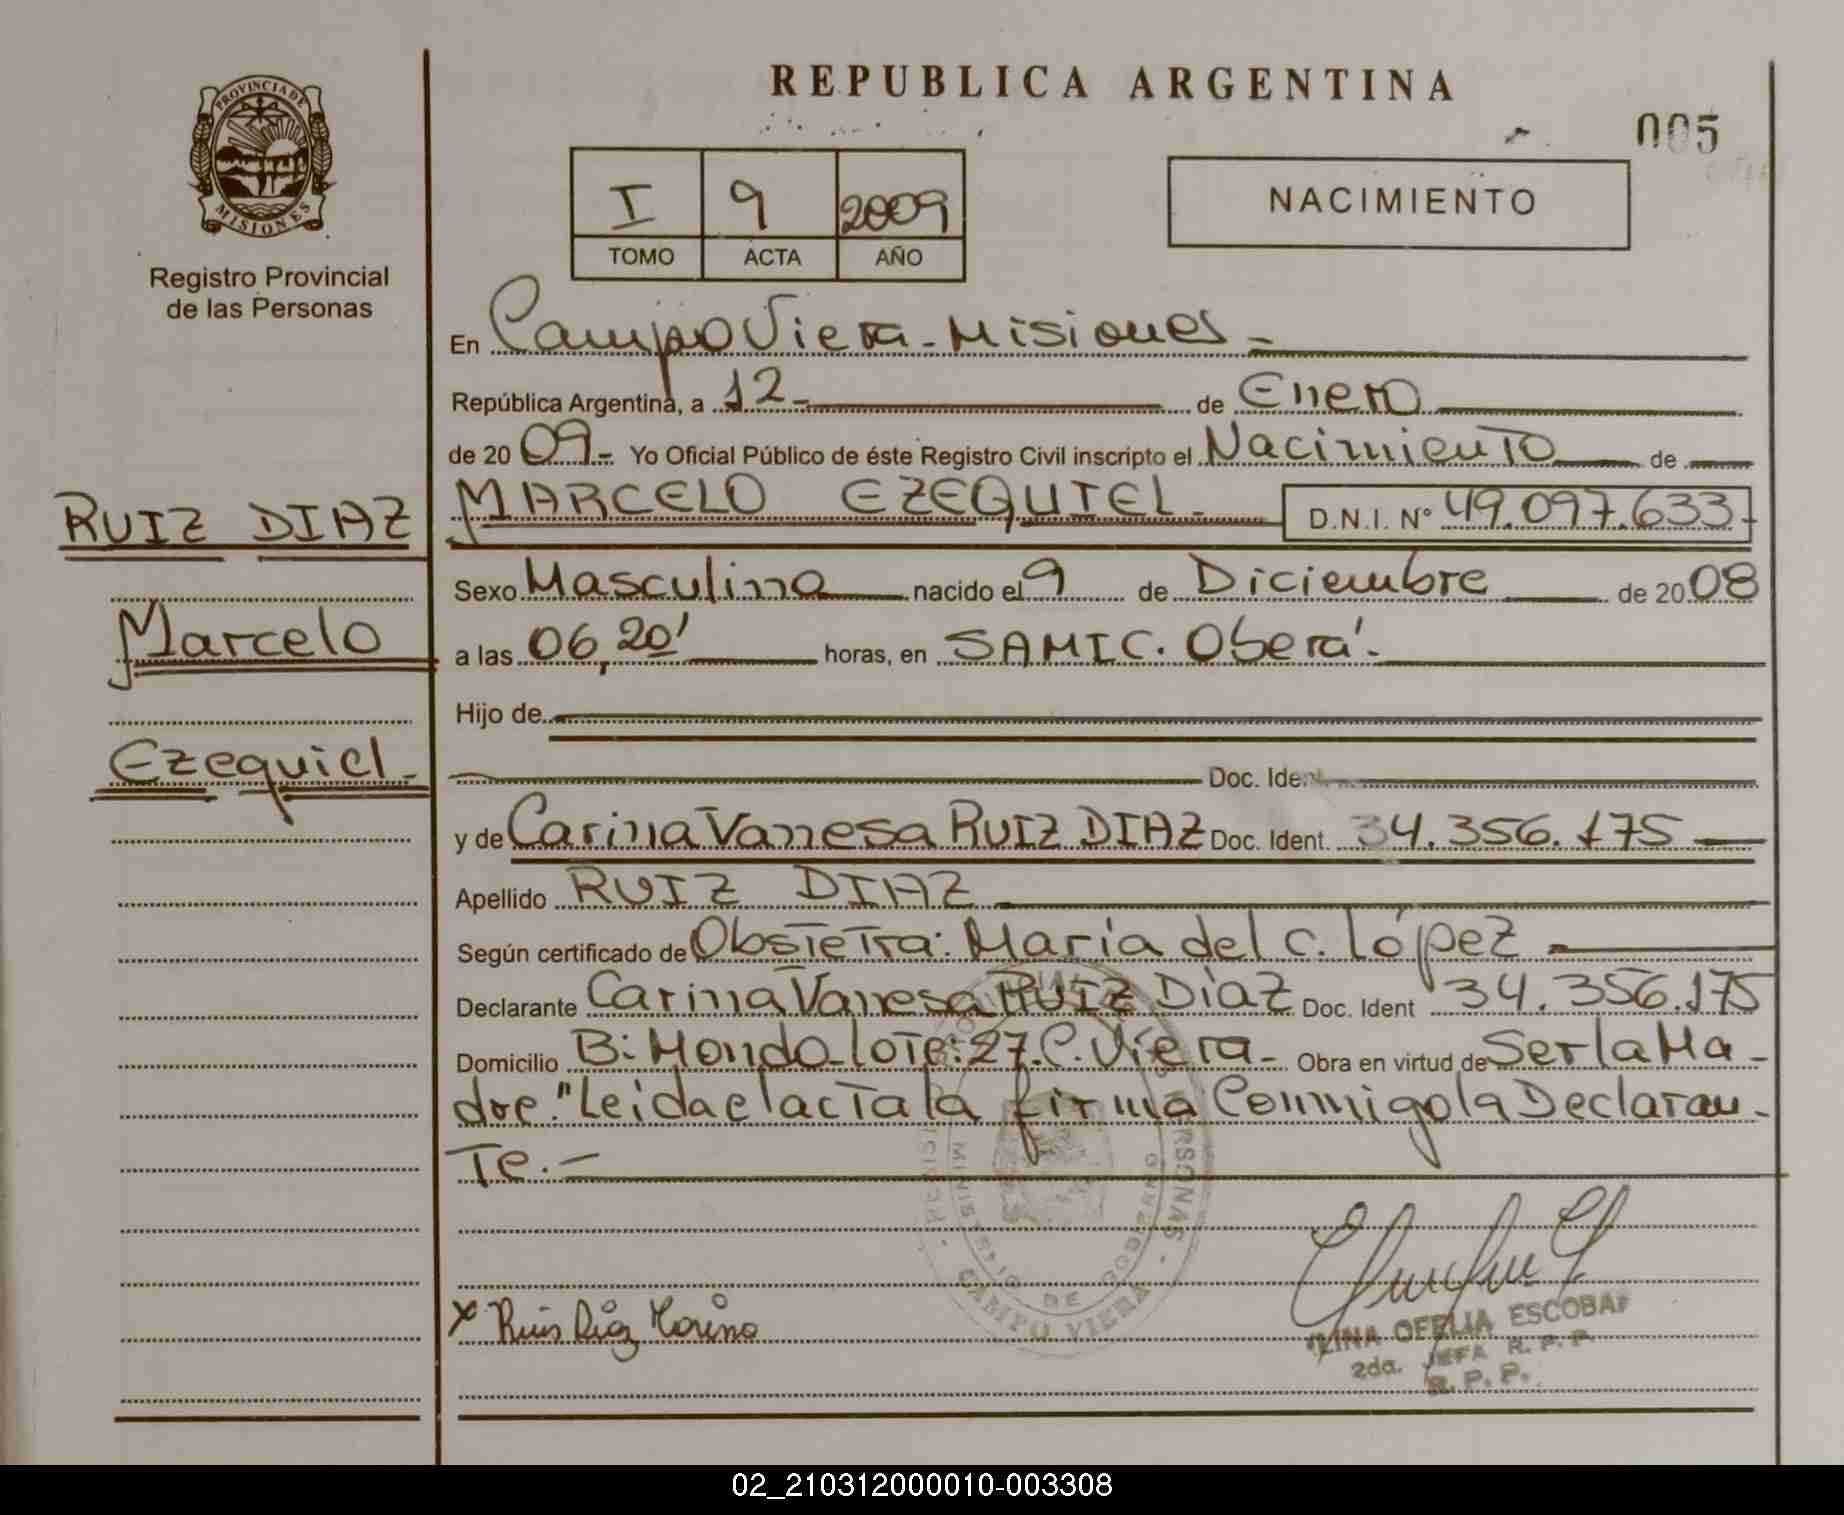 REPUBLICA ARGENTINA
005
PROVINCIA DE MISIONES
Registro Provincial
de las Personas
I 9 2009
TOMO ACTA AÑO
NACIMIENTO
En Campo Viera - Misiones -
República Argentina, a 12- de Enero
de 20 09.- Yo Oficial Público de éste Registro Civil inscripto el Nacimiento de
RUIZ DIAZ
MARCELO EZEQUIEL- D.N.I. Nº 49.097.633-
Sexo Masculino nacido el 9 de Diciembre de 20 08
Marcelo
a las 06,20' horas, en SAMIC. Oberá.-
Hijo de
Ezequiel-
Doc. Ident.
y de Carina Vanesa RUIZ DIAZ Doc. Ident. 34.356.175
Apellido RUIZ DIAZ
Según certificado de Obstetra: María del C. López
Declarante Carina Vanesa RUIZ DIAZ Doc. Ident 34.356.175
Domicilio B: Mondo-lote: 27. C. Viera- Obra en virtud de Ser la Ma-
dre." Leida el acta la firma Conmigo la Declaran-
te.-
MINISTERIO DE GOBIERNO
CAMPO VIERA
x Ruis Diaz Carina
LINA OFELIA ESCOBAR
2da. JEFA R. P. P.
R. P. P.
02_210312000010-003308